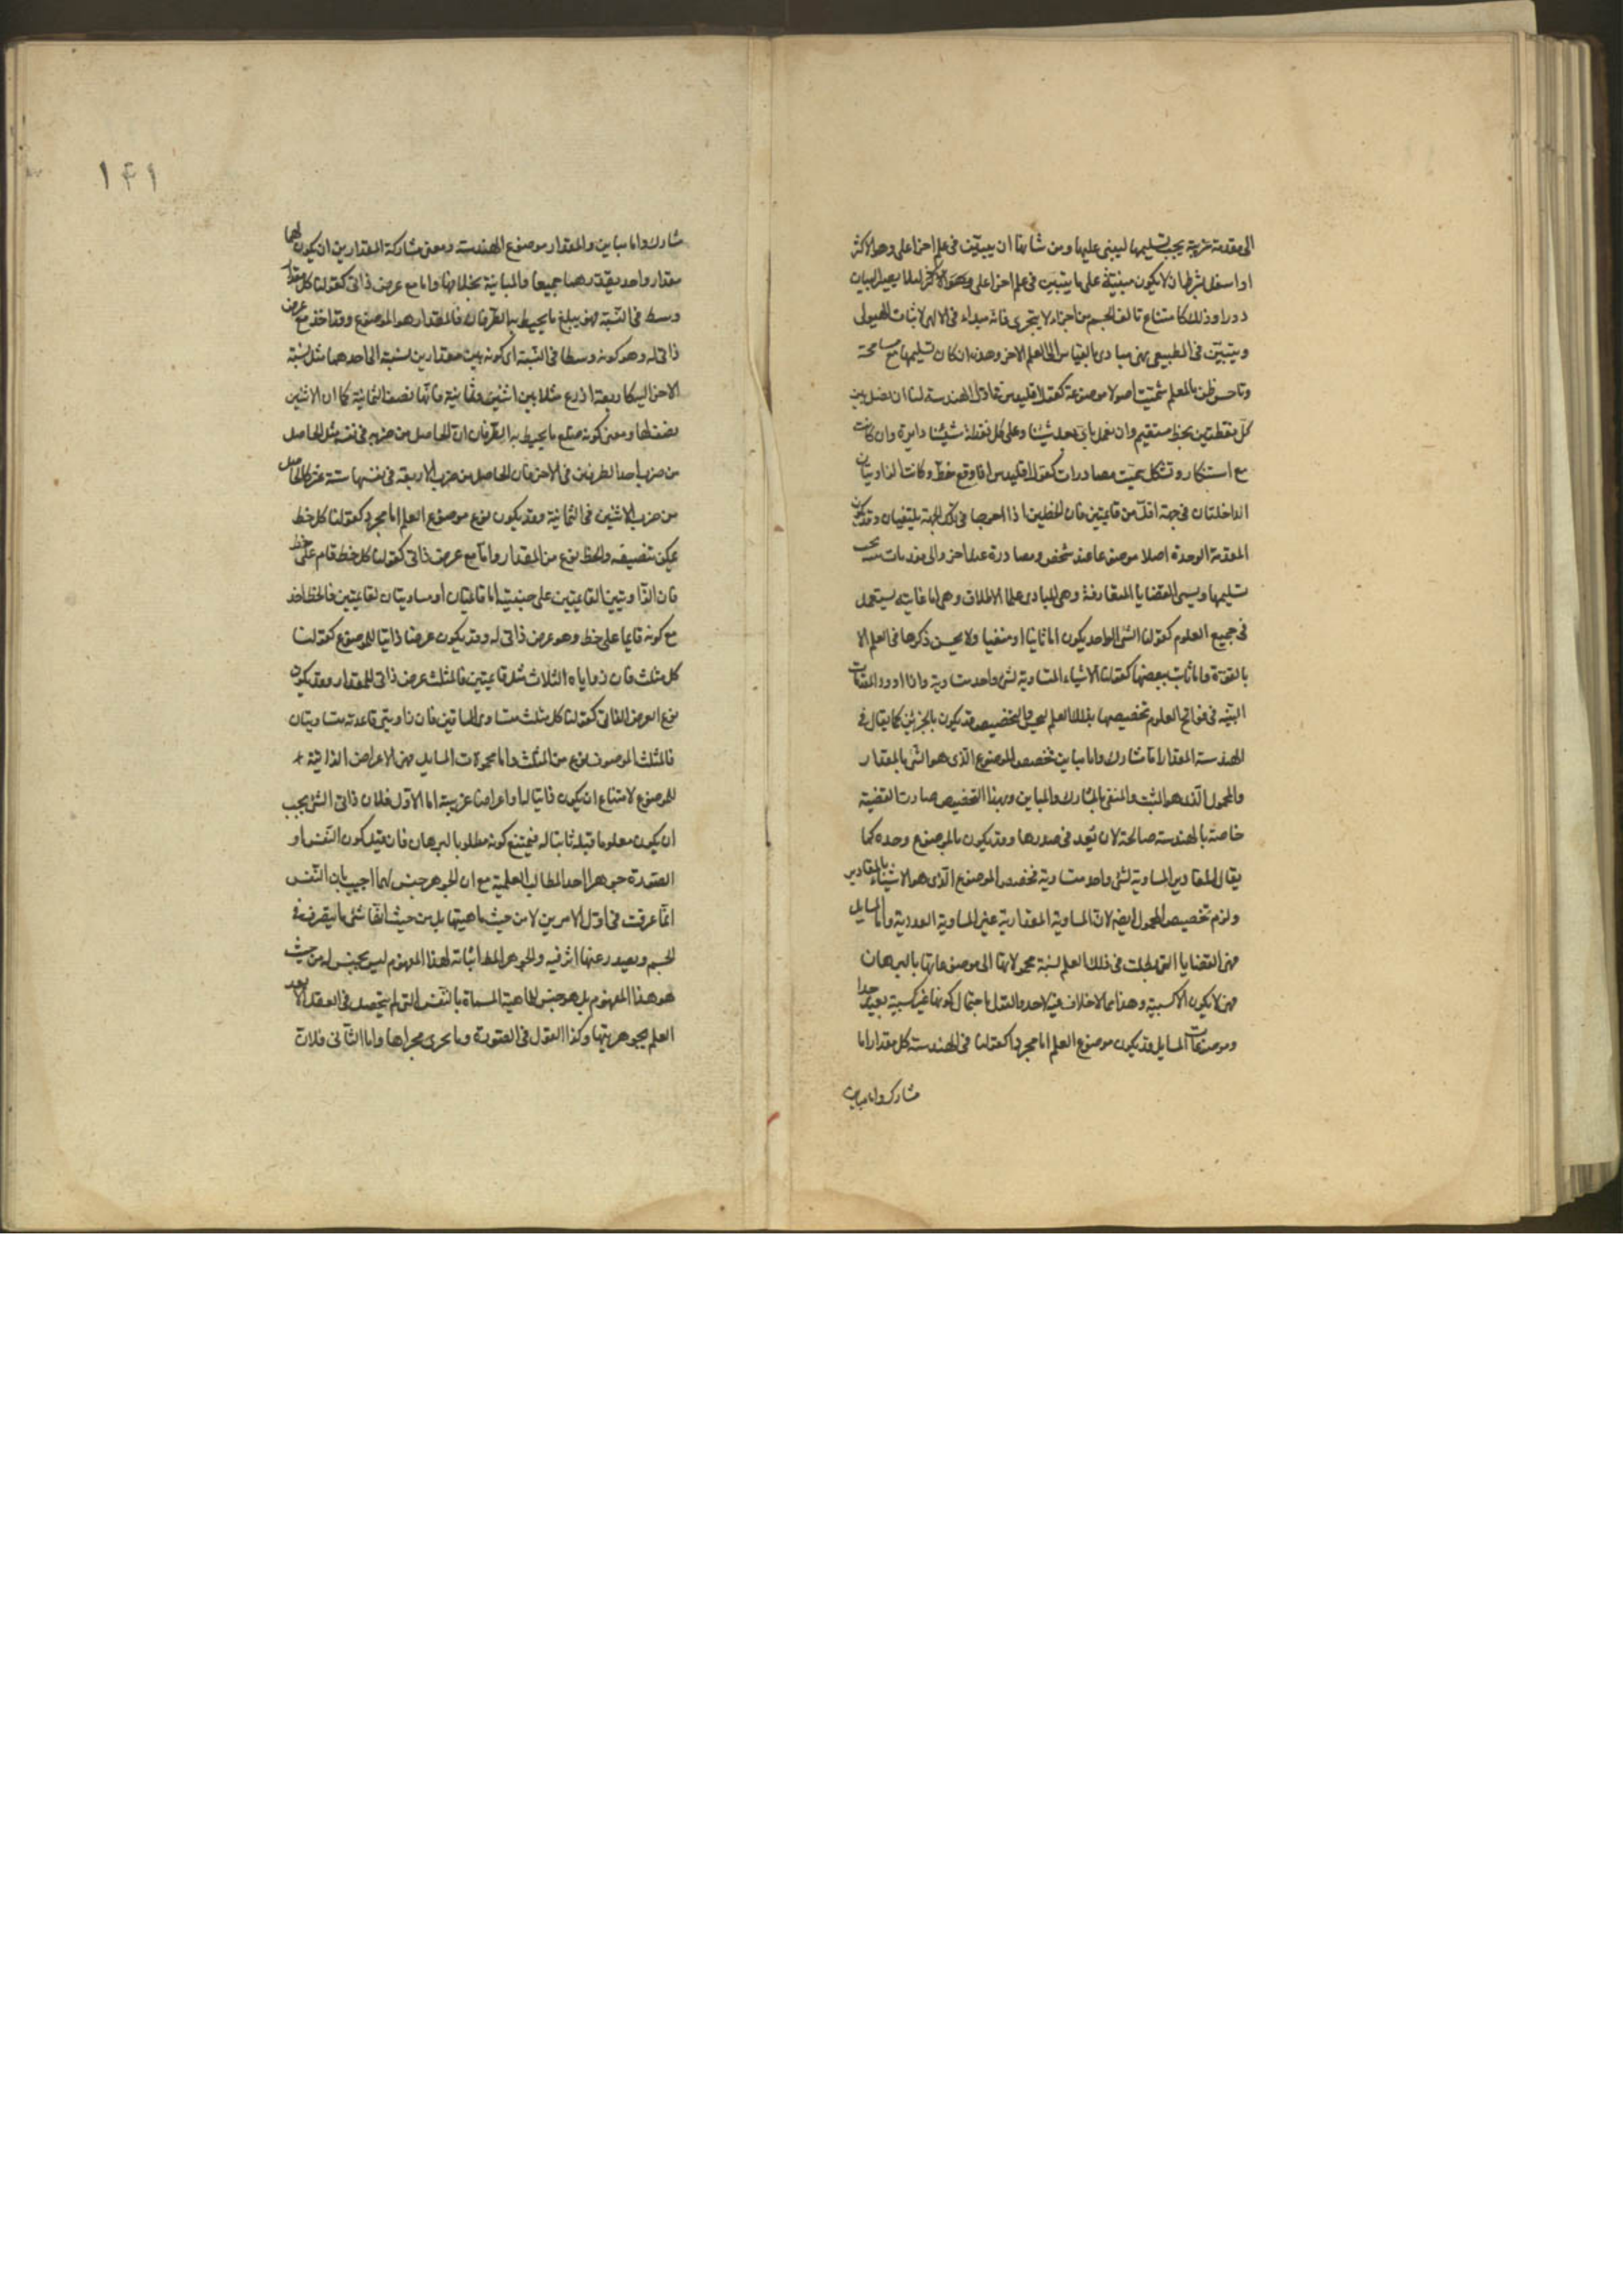 الى مقدمة غريبة يجب تسليمها ليبنى عليها ومن شانها ان يبيّن فى علم اخر اعلى وهو الاكثر
او اسفل بشرط ان لا يكون مبنيّة على ما يتبين فى علم اخر اعلى لئلا يصير البيان
دورا وذلك كامتناع تالف الجسم من اجزاء لا يتجزى فانه مبداء فى الالهى لاثبات الهيولى
ويتبيّن فى الطبيعى فهى مبادى بالقياس الى العلم الاخر وهذه ان كان تسليمها مع مسامحة
وبا حسن ظن بالمعلم سمّيت اصولا موضوعة كقول اقليدس فى اوّل الهندسة لنا ان نصل بين
كلّ نقطتين بخط مستقيم وان نعمل باىّ بعد شئنا وعلى كل نقطة شئنا دايرة وان كانت
مع استنكار وتشكل سمّيت مصادرات كقول اقليدس اذا وقع خط وكانت الزاويتان
الداخلتان فى جهة اقلّ من قايمتين فان الخطين اذا اخرجا فى تلك الجهة يلتقيان وقد يكون
المقدمة الوحدة اصلا موضوعا عند شخص ومصادرة عند اخر والى مقدمات يجب
تسليمها ويسمى القضايا المتعارفة وهى المبادى على الاطلاق وهى اما عامة يستعمل
فى جميع العلوم كقولنا الشى الواحد يكون اما ثابتا او منفيا ولا يحسن ذكرها فى العلم الا
بالقوّة واما خاصة ببعضها كقولنا الاشياء المتساوية لشى واحد متساوية واذا اورد المقدمات
البيّنة فى فواتح العلوم تخصيصها بذلك العلم والتخصيص قد يكون بالجزئين كما يقال فى
الهندسة المقدار اما مشارك واما مباين تخصص الموضوع الّذى هو الشى بالمقدار
والمحمول الّذى هو المثبت والمنفى بالمشارك والمباين وبهذا التخصيص صارت القضيّة
خاصة بالهندسة صالحة لان تعد فى صدرها وقد يكون بالموضوع وحده كما
يقال المقادير المساوية لشى واحد متساوية فخصص الموضوع الّذى هو الاشياء بالمقادير
ولزم تخصيص المحمول ايضا لانّ المساوية المقدارية غير المساوية العددية واما المسايل
فهى القضايا التى طلبت فى ذلك العلم نسبة محمولاتها الى موضوعاتها بالبرهان
فهى لا يكون الا كسبية وهذا مما لا خلاف فيه لاحد والقول باحتمال كونها غير كسبية بعيد جدا
وموضوعات المسايل قد يكون موضوع العلم اما مجردا كقولنا فى الهندسة كل مقدار اما
مشارك واما مباين
١٤١
مشارك واما مباين والمقدار موضوع الهندسة ومعنى مشاركة المقدارين ان يكون لهما
مقدار واحد يقدّرهما جميعا والمباينة بخلافها واما مع عرض ذاتى كقولنا كل مقدار
وسط فى النّسبة فهو ضلع ما يحيط به الطرفان فالمقدار هو الموضوع وقد اخذ مع عرض
ذاتى له وهو كونه وسطا فى النّسبة اى كونه بين مقدارين نسبته الى احدهما مثل نسبة
الاخر اليه كاربعة اذرع مثلا بين اثنين وثمانية فانّها نصف الثمانية كما ان الاثنين
نصفها ومعنى كونه ضلع ما يحيط به الطرفان انّ الحاصل من ضربه فى نفسه مثل الحاصل
من ضرب احد الطرفين فى الاخر فان الحاصل من ضرب الاربعة فى نفسها ستة عشر كالحاصل
من ضرب الاثنين فى الثمانية وقد يكون نوع موضوع العلم اما مجردا كقولنا كل خط
يمكن تنصيفه والخط نوع من المقدار واما مع عرض ذاتى كقولنا كل خط قام على خط
فان الزاويتين القايمتين على جنبيه اما قايمتان او مساويتان لقايمتين فالخط اخذ
مع كونه قايما على خط وهو عرض ذاتى له وقد يكون عرضا ذاتيا للموضوع كقولنا
كل مثلث فان زواياه الثلاث مثل قايمتين فالمثلث عرض ذاتى للمقدار وقد يكون
نوع العرض الذاتى كقولنا كل مثلث متساوى الساقين فان زاويتى قاعدته متساويتان
فالمثلث الموصوف نوع من المثلث واما محمولات المسايل فهى الاعراض الذاتية
للموضوع لامتناع ان يكون ذاتيا لها واعراضا غريبة اما الاوّل فلان ذاتى الشى يجب
ان يكون معلوما قبل ثابتا له فيمتنع كونه مطلوبا بالبرهان فان قيل كون النّفس او
الصّورة جوهرا احد المطالب العلمية مع ان الجوهر جنس لهما اجيب بان النّفس
انّما عرفت فى اوّل الامر بن لا من حيث ماهيتها بل من حيث انّها شى ما يتصرف فى
الجسم ويصدر عنها اثر فيه والجوهر المط اثباته لهذا المفهوم ليس بجنس له من حيث
هو هذا المفهوم بل هو جنس لماهية المسماة بالنّفس التى لم يتحصل فى العقل الا بعد
العلم بجوهريتها وكذا القول فى الصّورة وما يجرى مجراها واما الثّانى فلان